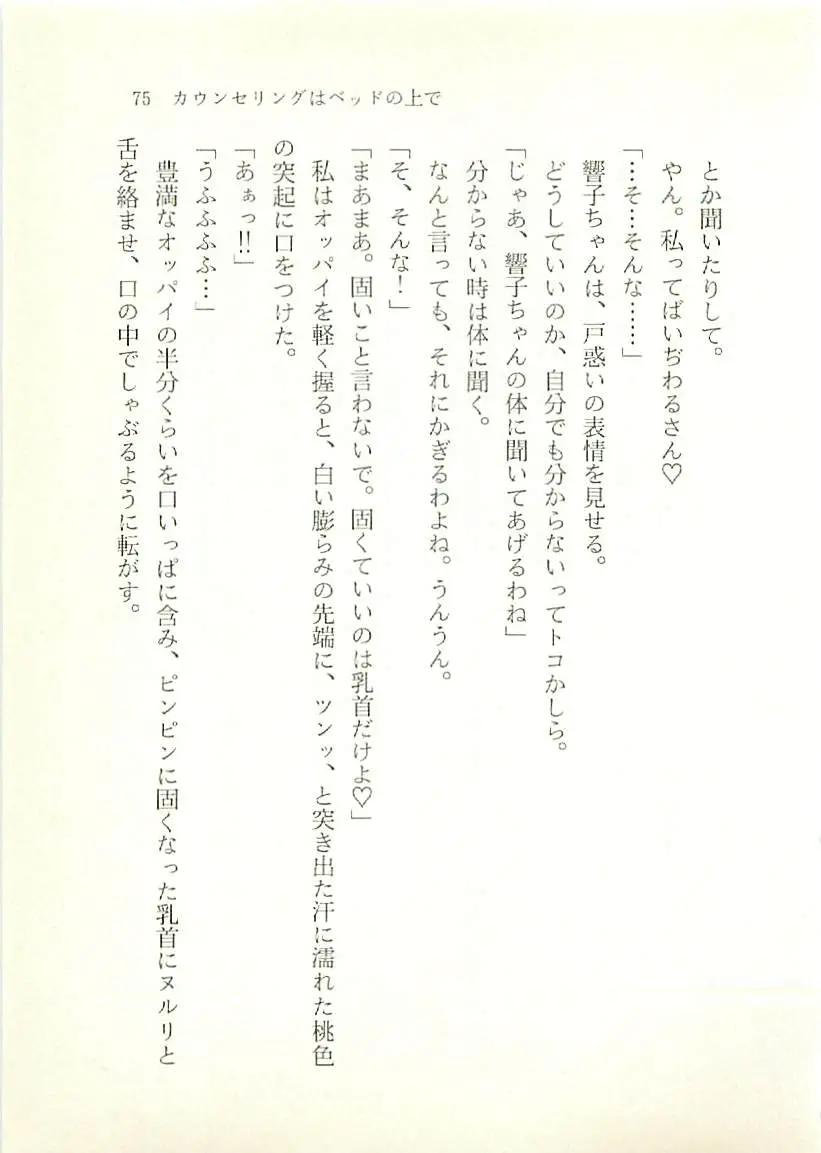 75　カウンセリングはベッドの上で
とか聞いたりして。
やん。私ってばいぢわるさん♡
「…そ…そんな……」
響子ちゃんは、戸惑いの表情を見せる。
どうしていいのか、自分でも分からないってトコかしら。
「じゃあ、響子ちゃんの体に聞いてあげるわね」
分からない時は体に聞く。
なんと言っても、それにかぎるわよね。うんうん。
「そ、そんな！」
「まあまあ。固いこと言わないで。固くていいのは乳首だけよ♡」
私はオッパイを軽く握ると、白い膨らみの先端に、ツンッ、と突き出た汗に濡れた桃色
の突起に口をつけた。
「あぁっ!!」
「うふふふふ…」
豊満なオッパイの半分くらいを口いっぱに含み、ピンピンに固くなった乳首にヌルリと
舌を絡ませ、口の中でしゃぶるように転がす。